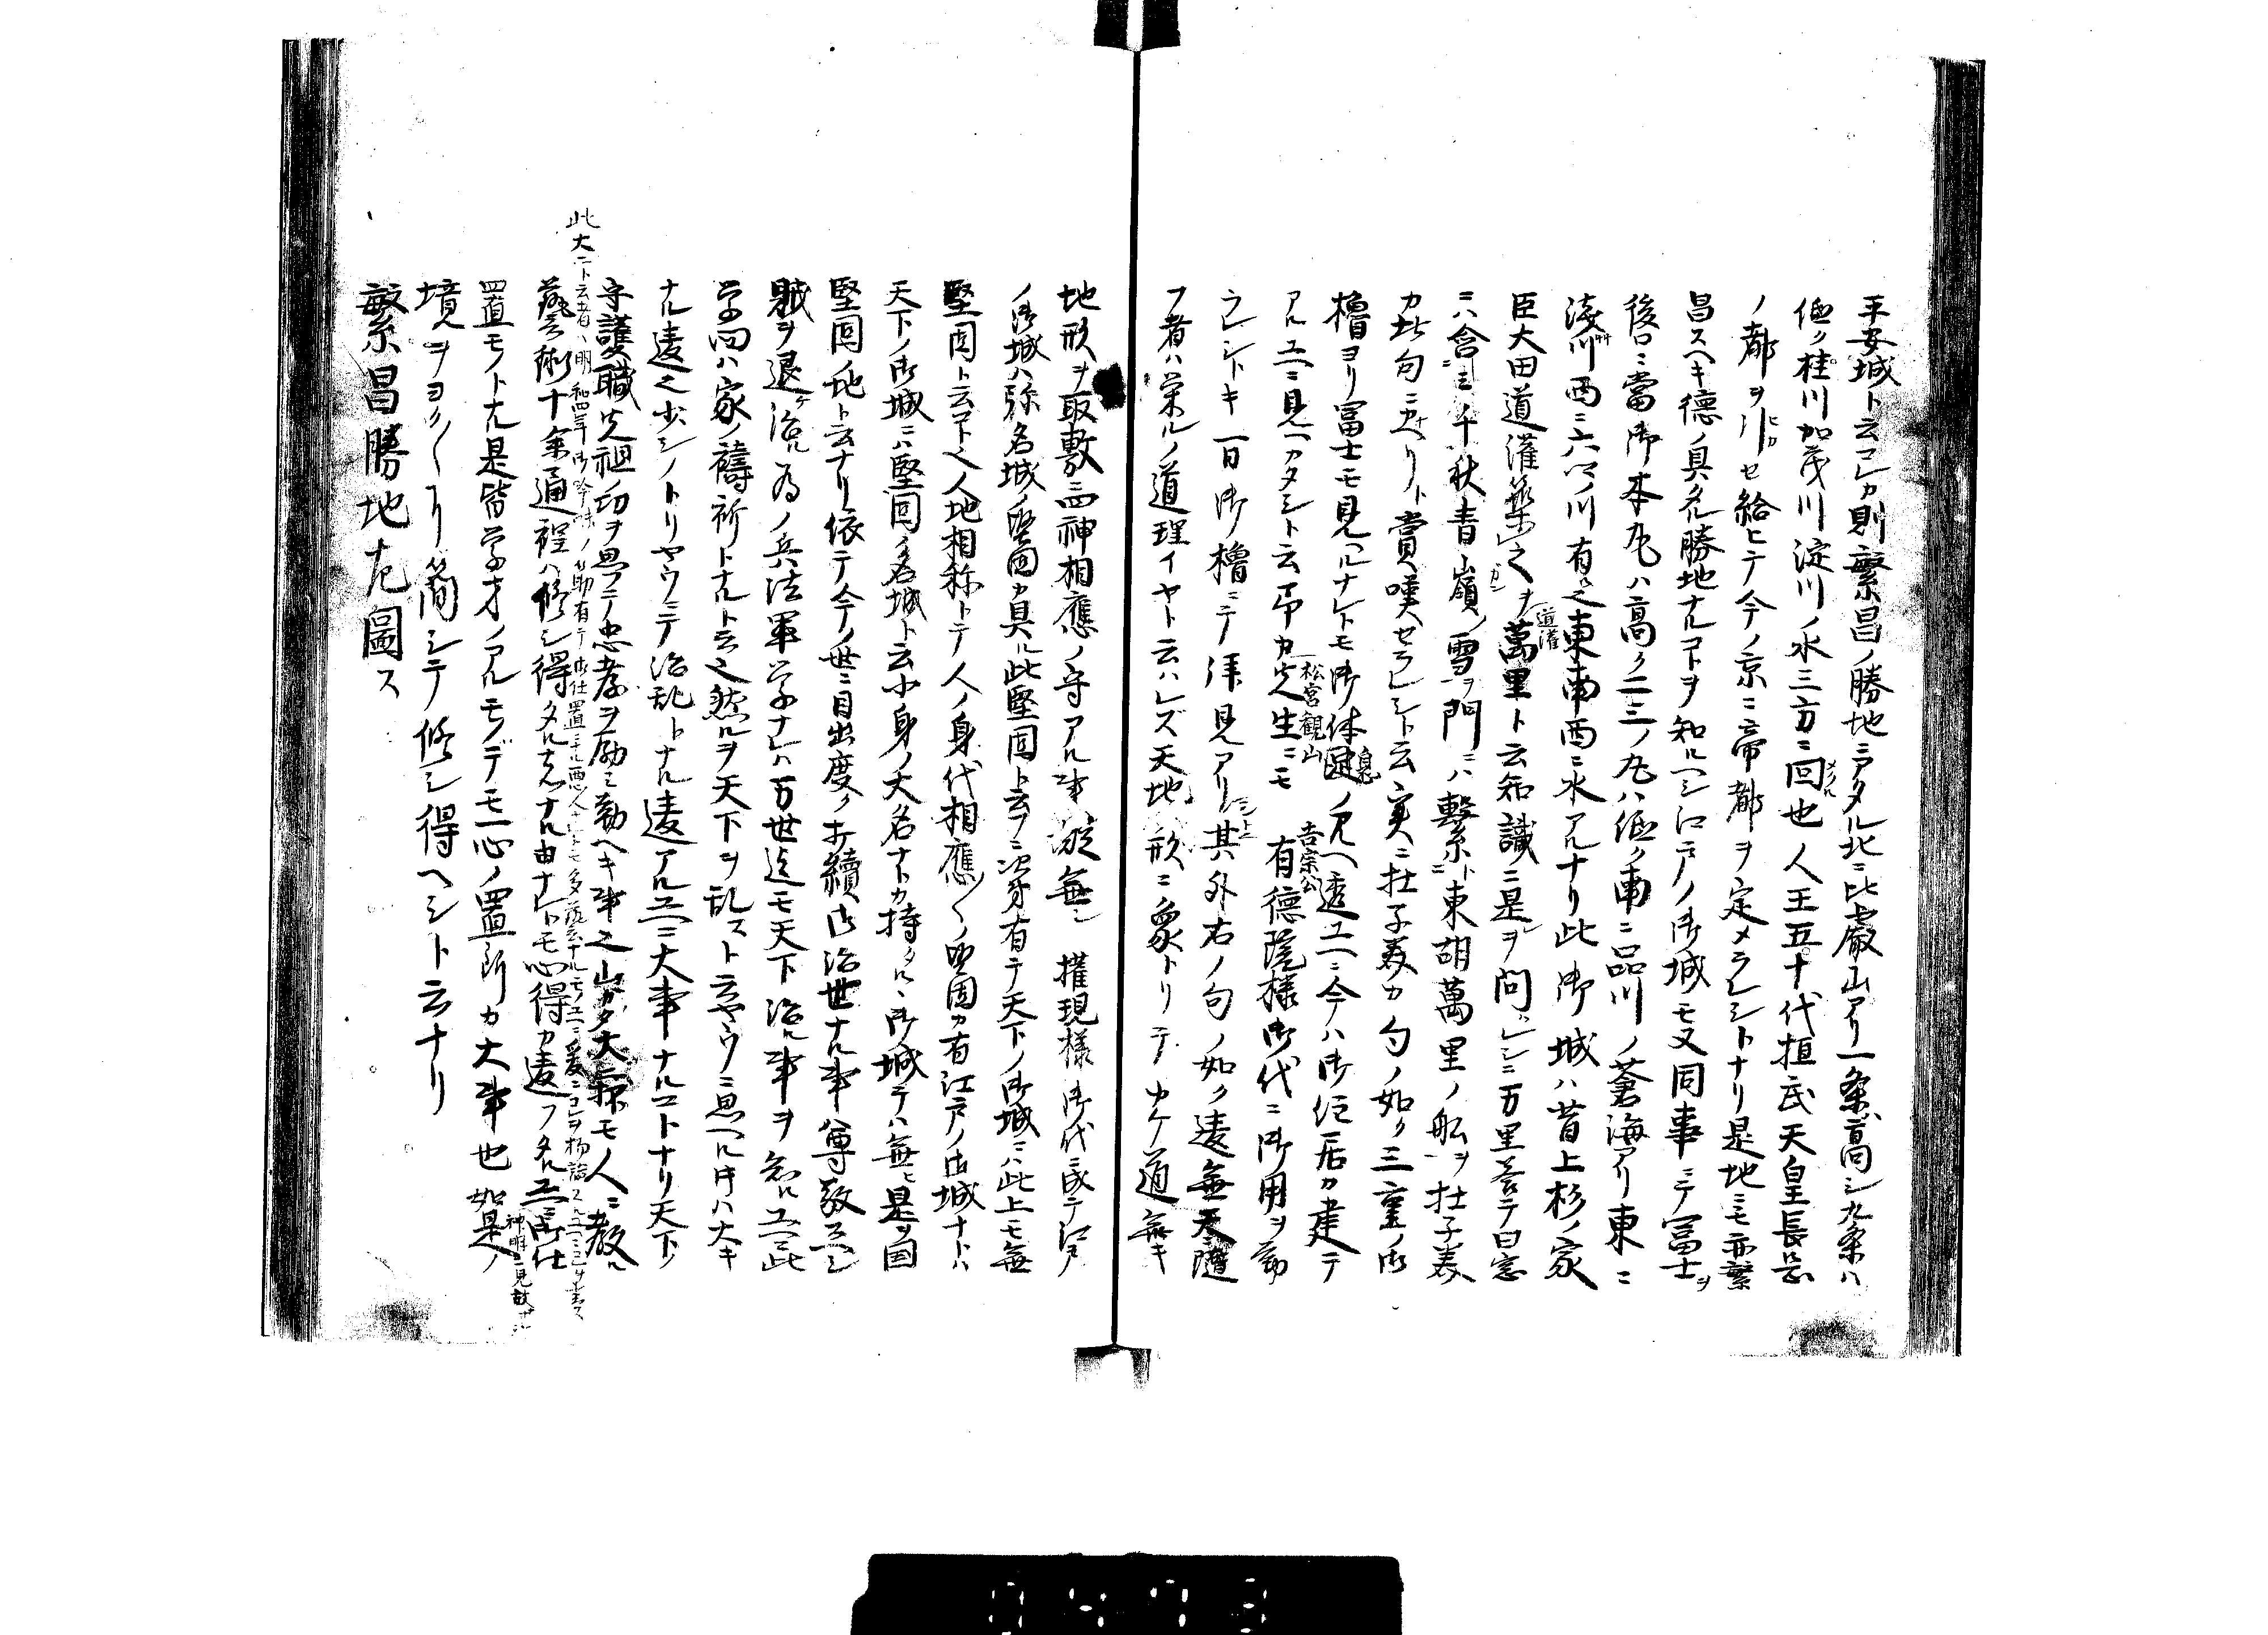 平安城ト云コレカ則繁昌ノ勝地ニアタル北ニ比叡山アリ一条ハ高シ九条ハ
低ク桂川加茂川淀川ノ水三方ニ回也人王五十代桓武天皇長岡
ノ都ヲ引セ給ヒテ今ノ京ニ帝都ヲ定メラレシトナリ是地ニモ亦繁
昌スヘキ徳ノ具タル勝地ナルコトヲ知ルヘシ江戸ノ御城モ又同事ニテ冨士ヲ
後ロニ當御本丸ハ高ク二三ノ丸ハ低ク南ニ品川ノ蒼海アリ東ニ
浅川西ニ六ツノ川有之東南西ニ水アルナリ此御城ハ昔上杉ノ家
臣大田道灌築之ヲ道灌萬里ト云知識ニ是ヲ問レシニ万里答テ曰窓
ニハ含ミ千秋青嶺ノ雪ヲ門ニハ繋ト東胡萬里ノ舩ヲ杜子美
カ此句ニ叶ヘリト賞嘆セラレシト云実ニ杜子美カ句ノ如ク三重ノ御
櫓ヨリ冨士モ見ヘルナレトモ御休息ノ見ヘ透ユヘニ今ハ御住居カ建テ
アルユヘニ見ヘカタシト云予カ先生ニモ 松宮観山 有徳院様 吉宗公 御代ニ御用ヲ勤
ラレシトキ一日御櫓ニテ拝見アリシニ其外右ノ句ノ如ク違無天ニ随
フ者ハ栄ルノ道理イヤト云ハレズ天地ノ形ニ象トリテカケ道無キ
地形ヲ取敷四神相應ノ守アル事疑無シ 權現様御代ニ成テ江戸
ノ御城ハ弥名城ノ堅固カ具ル此堅固ト云フニ次第有テ天下ノ御城ニハ此上モ無
堅固ト云コト也人地相称トテ人ノ身代相應〳〵ノ堅固カ有江戸ノ御城ナトハ
天下ノ御城ニハ堅固ノ名城ト云小身ノ大名ナトカ持タル御城テハ無ヒ是ヲ国
堅固ノ地ト云ナリ依テ今ノ世ニ目出度ク打續御治世ナル事ハ尊敬スヘシ
賊ヲ退ケ治ル為ノ兵法軍学ナレハ万世迄モ天下治ル事ヲ知ルユヘニ此
学問ハ家ノ禱祈トナルト云之然ルヲ天下ヲ乱スト云ヤウニ思ヘル片ハ大キ
ナル違之少シノトリヤウニテ治乱トナル違アルユヘニ大事ナルコトナリ天下ノ
守護職先祖ノ功ヲ思フテノ忠孝ヲ励ミ勤ヘキ事之山カタ大弐モ人ニ教ル
此大ニト云者ハ明和四年御吟味ノ節有テ御仕置ニ
藝術十余通程ハ修シ得タル者ナル由ナレトモ心得カ違フタルユヘニ御仕
置モノトナル是皆学才ノアルモノデモ一心ノ置所カ大事也如是ノ
境ヲヨク〳〵了簡シテ修シ得ヘシト云ナリ
繁昌勝地左圖ス